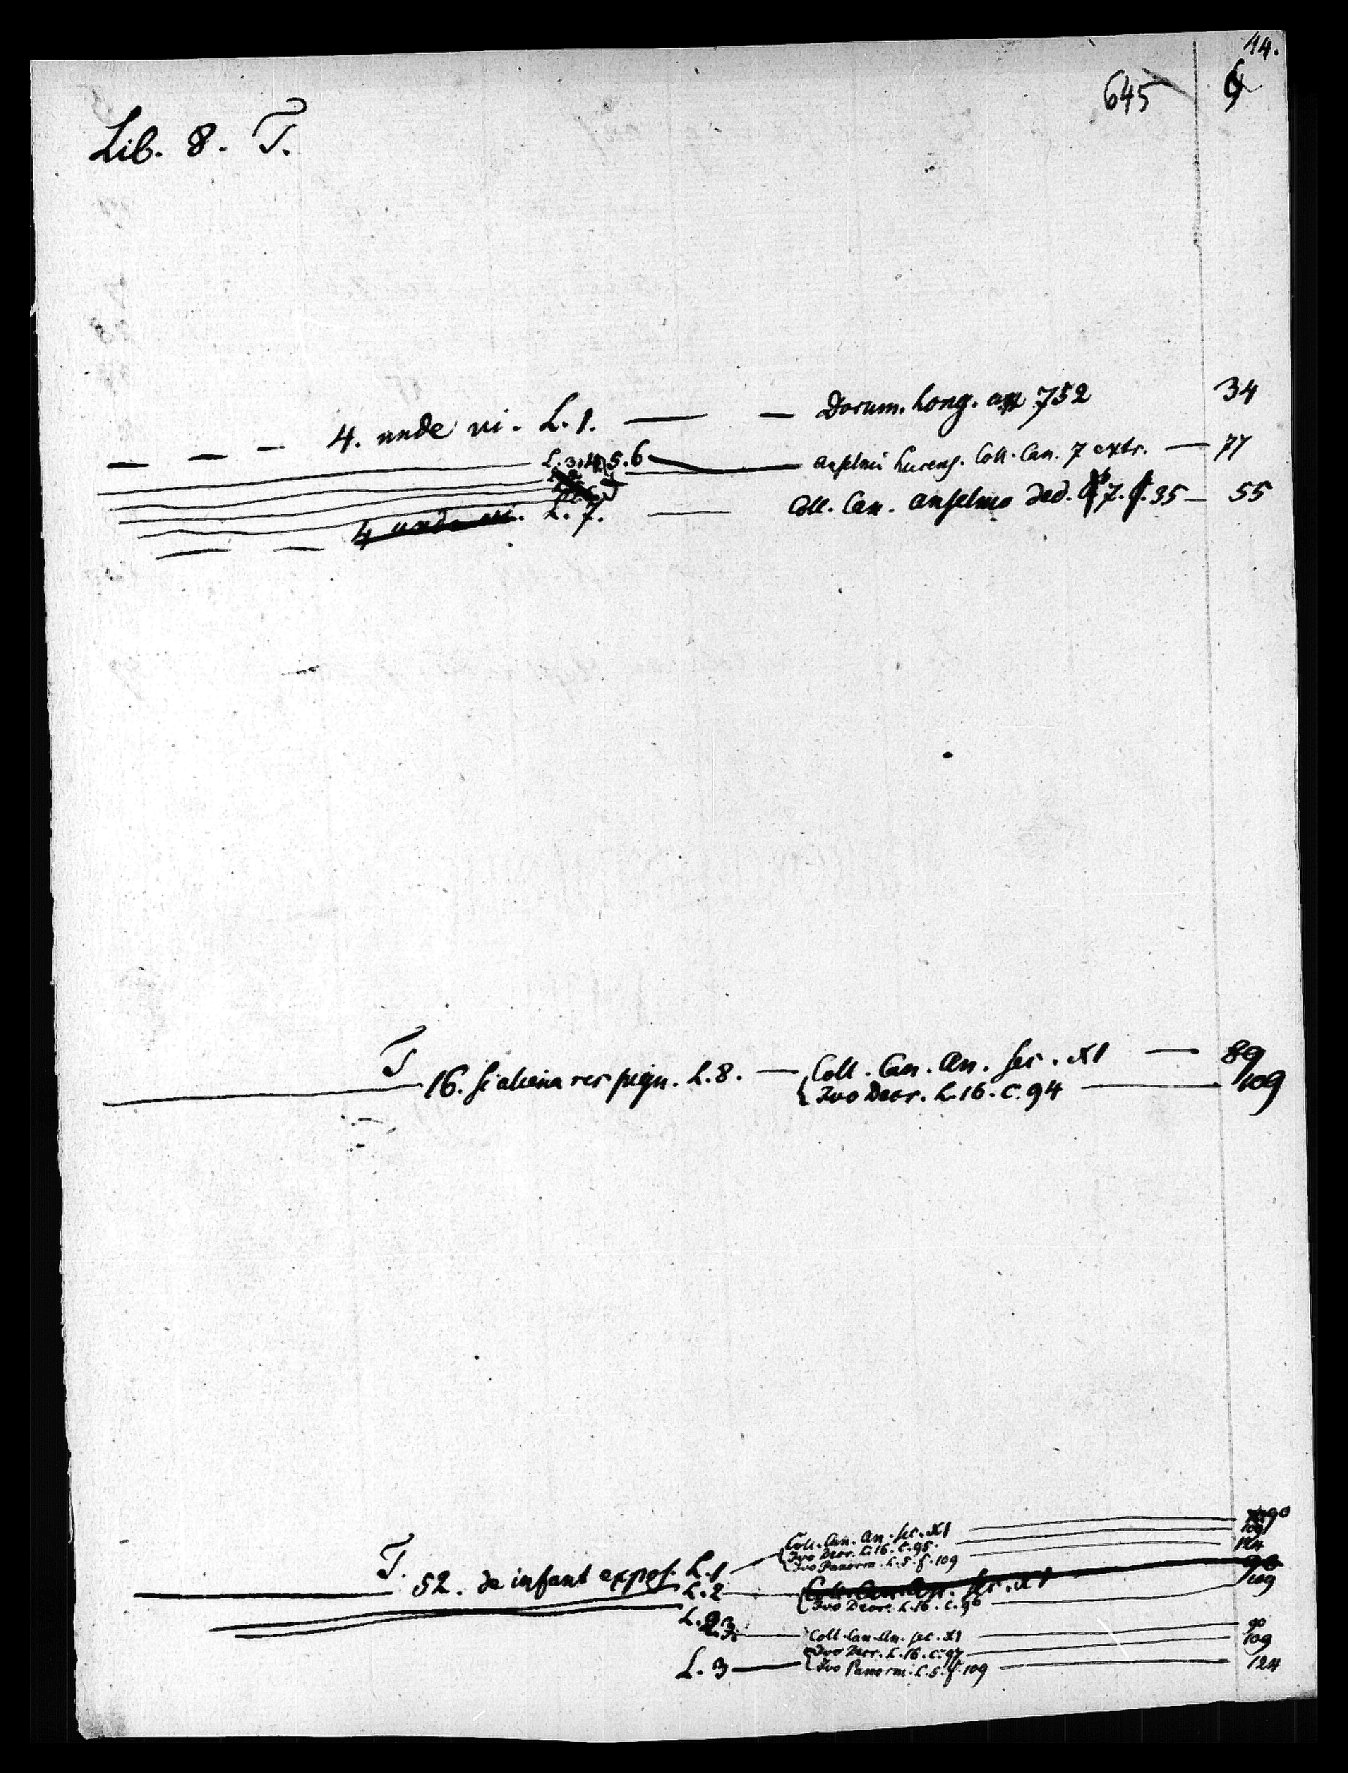 44.
645
Lib. 8. T.
4. unde vi. L. 1. — — Docum. Long. app 752 34
L. 3. 4. 5. 6 — Anselmi Lucens. Coll. Can. 7 extr. — 77
4 unde vi. L. 7. — Coll. Can. Anselmo ded. 7. 35 — 55
T
16. si aliena res pign. L. 8. — Coll. Can. An. sec. XI — 89
Ivo Decr. L. 16. c. 94 109
T.
52. de infant expos. L. 1 Coll. Can. An. sec. XI 90
Ivo Decr. L. 16. c. 95. 109
Ivo Panorm. L. 5. f. 109 124
L. 2 Coll. Can. An. sec. XI 90
Ivo Decr. L. 16. c. 96 109
L. 3. Coll. Can. An. sec. XI 90
Ivo Decr. L. 16. c. 97 109
L. 3 — Ivo Panorm. L. 5. f. 109 124